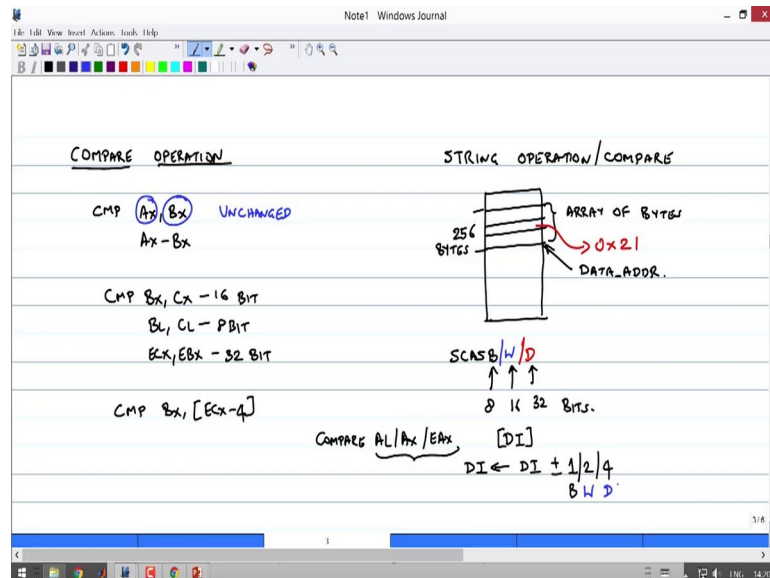 Note1 - Windows Journal
File Edit View Insert Actions Tools Help
B I
COMPARE OPERATION
CMP AX, BX UNCHANGED
AX-BX
CMP BX, CX - 16 BIT
BL, CL - 8BIT
ECX, EBX - 32 BIT
CMP BX, [ECX-4]
STRING OPERATION/COMPARE
ARRAY OF BYTES
256
BYTES
0x21
DATA_ADDR.
SCASB/W/D
8 16 32 BITS.
COMPARE AL/AX/EAX, [DI]
DI ← DI ± 1/2/4
B W D
3/6
3
ENG 14:20